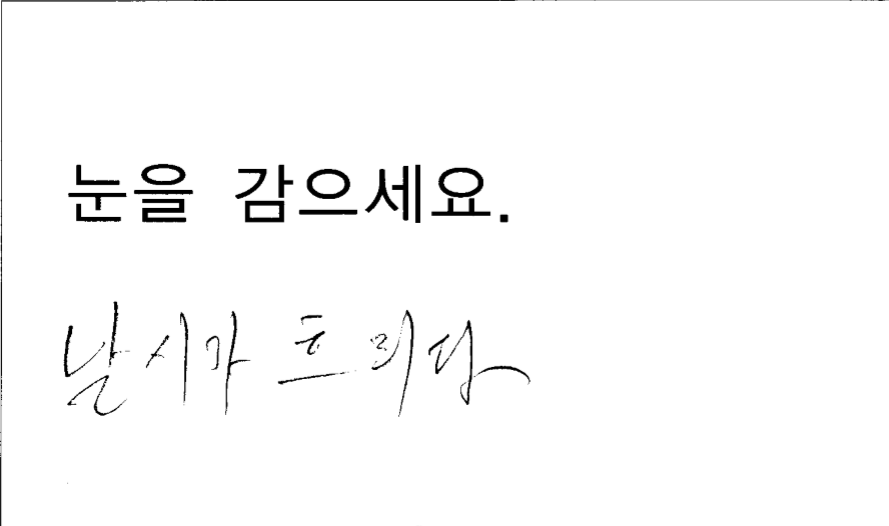 눈을 감으세요.
날시가 흐리다